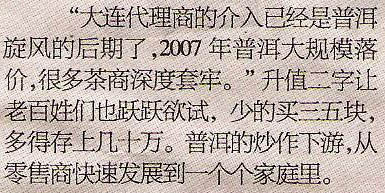 “大连代理商的介入已经是普洱
旋风的后期了,2007 年普洱大规模落
价,很多茶商深度套牢。”升值二字让
老百姓们也跃跃欲试，少的买三五块，
多得存上几十万。普洱的炒作下游,从
零售商快速发展到一个个家庭里。